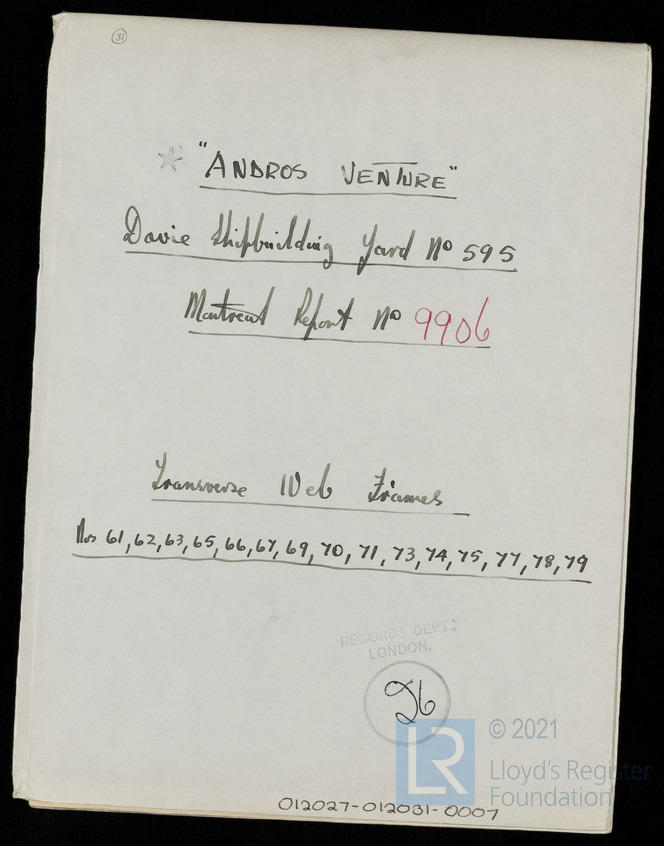 31
"ANDROS VENTURE"
Davie Shipbuilding Yard No 595
Montreal Report No 9906
Transverse Web Frames
Nos 61, 62, 63, 65, 66, 67, 69, 70, 71, 73, 74, 75, 77, 78, 79
RECORDS DEPT.
LONDON.
26
LR
© 2021
Lloyd's Register
Foundation
012027-012031-0007